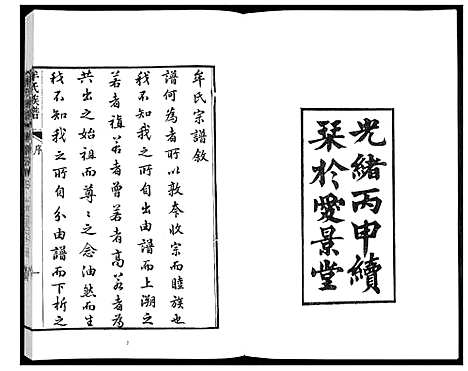 光緒丙申續
栞於愛景堂
牟氏宗譜敘
譜何為者所以敦本收宗而睦族也
我不知我之所自出由譜而上溯之
若者祖若者曾若者高若者為
共出之始祖而尊尊之念油然而生
我不知我之所自分由譜而下析之
牟氏族譜
序
一